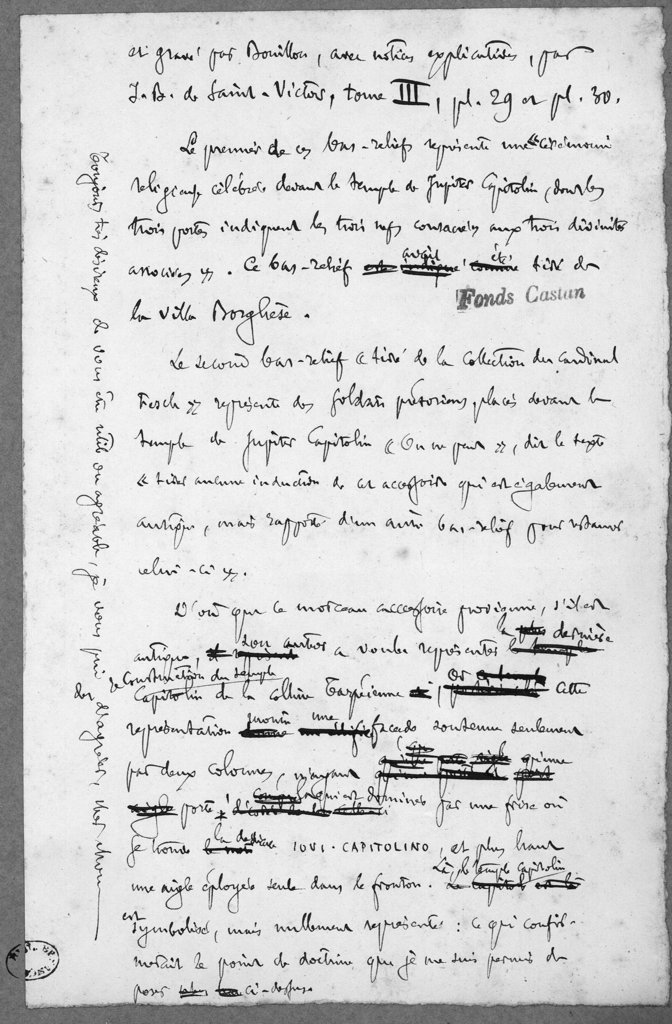 et gravé par Bouillon, avec notices explicatives, par
J.-B. de Saint-Victor, tome III, pl. 29 et pl. 30.
Le premier de ces bas-reliefs représente une « cérémonie
religieuse célébrée devant le temple de Jupiter Capitolin, dont les
trois portes indiquent les trois nefs consacrées aux trois divinités
associées ». Ce bas-relief avait été tiré de
la villa Borghèse.
Fonds Castan
Le second bas-relief « tiré de la collection du cardinal
Fesch » représente des soldats prétoriens, placés devant le
temple de Jupiter Capitolin « On ne peut », dit le texte
« tirer aucune induction de cet accessoire qui est également
antique, mais rapporté d'un autre bas-relief pour restaurer
celui-ci ».
D'où que ce morceau accessoire provienne, s'il est
antique, son auteur a voulu représenter la dernière
construction du temple
Capitolin de la colline tarpéienne ; or cette
représentation montre une façade soutenue seulement
par deux colonnes, n'ayant qu'une
porte dominée par une frise où
je trouve la dédicace IOVI·CAPITOLINO, et plus haut
une aigle éployée seule dans le fronton. Là, le temple capitolin
est symbolisé, mais nullement représenté : ce qui confir-
merait le point de doctrine que je me suis permis de
poser ci-dessus
Toujours très désireux de vous être utile ou agréable, je vous prie
d'agréer, cher